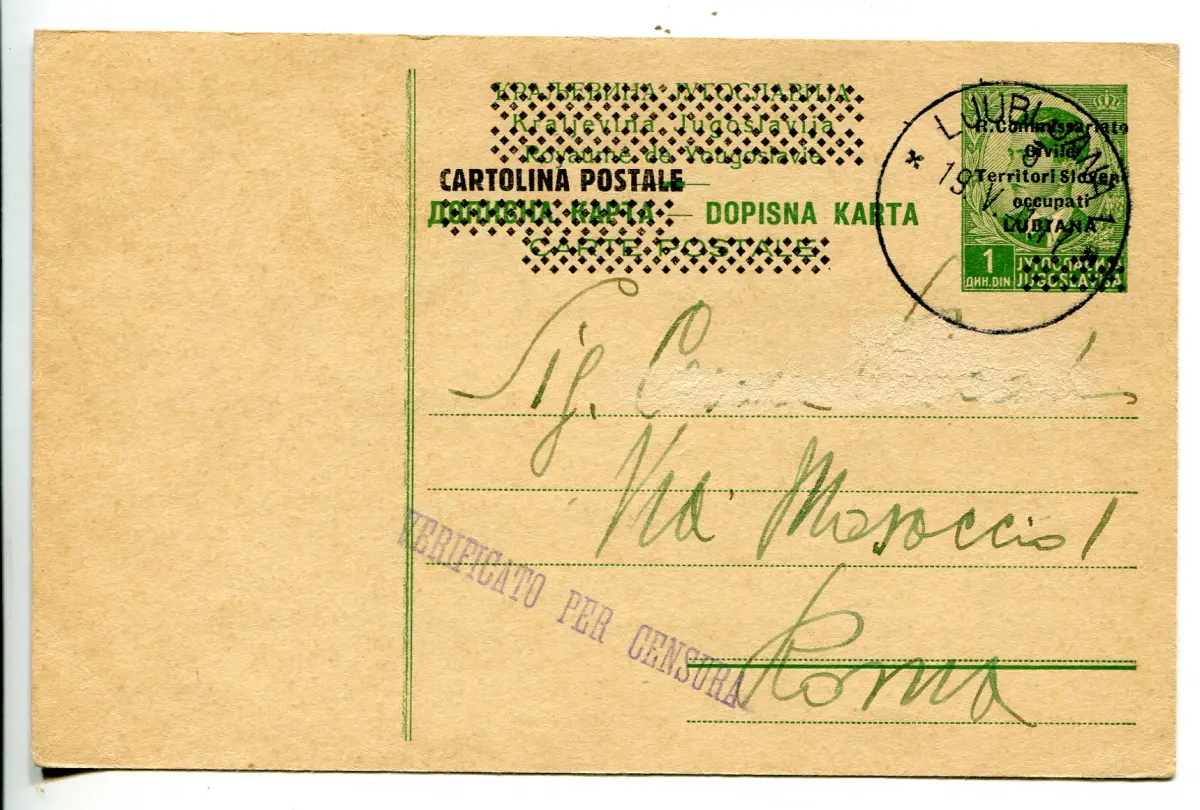 КРАЉЕВИНА ЈУГОСЛАВИЈА
Kraljevina Jugoslavija
Royaume de Yougoslavie
CARTOLINA POSTALE
ДОПИСНА КАРТА — DOPISNA KARTA
CARTE POSTALE
LJUBLJANA 1
19.V.41
R. Commissariato
Civile
Territori Sloveni
occupati
LUBIANA
1
ДИН.DIN
ЈУГОСЛАВИЈА
JUGOSLAVIJA
Sig.
Via Masaccio 1
Roma
VERIFICATO PER CENSURA